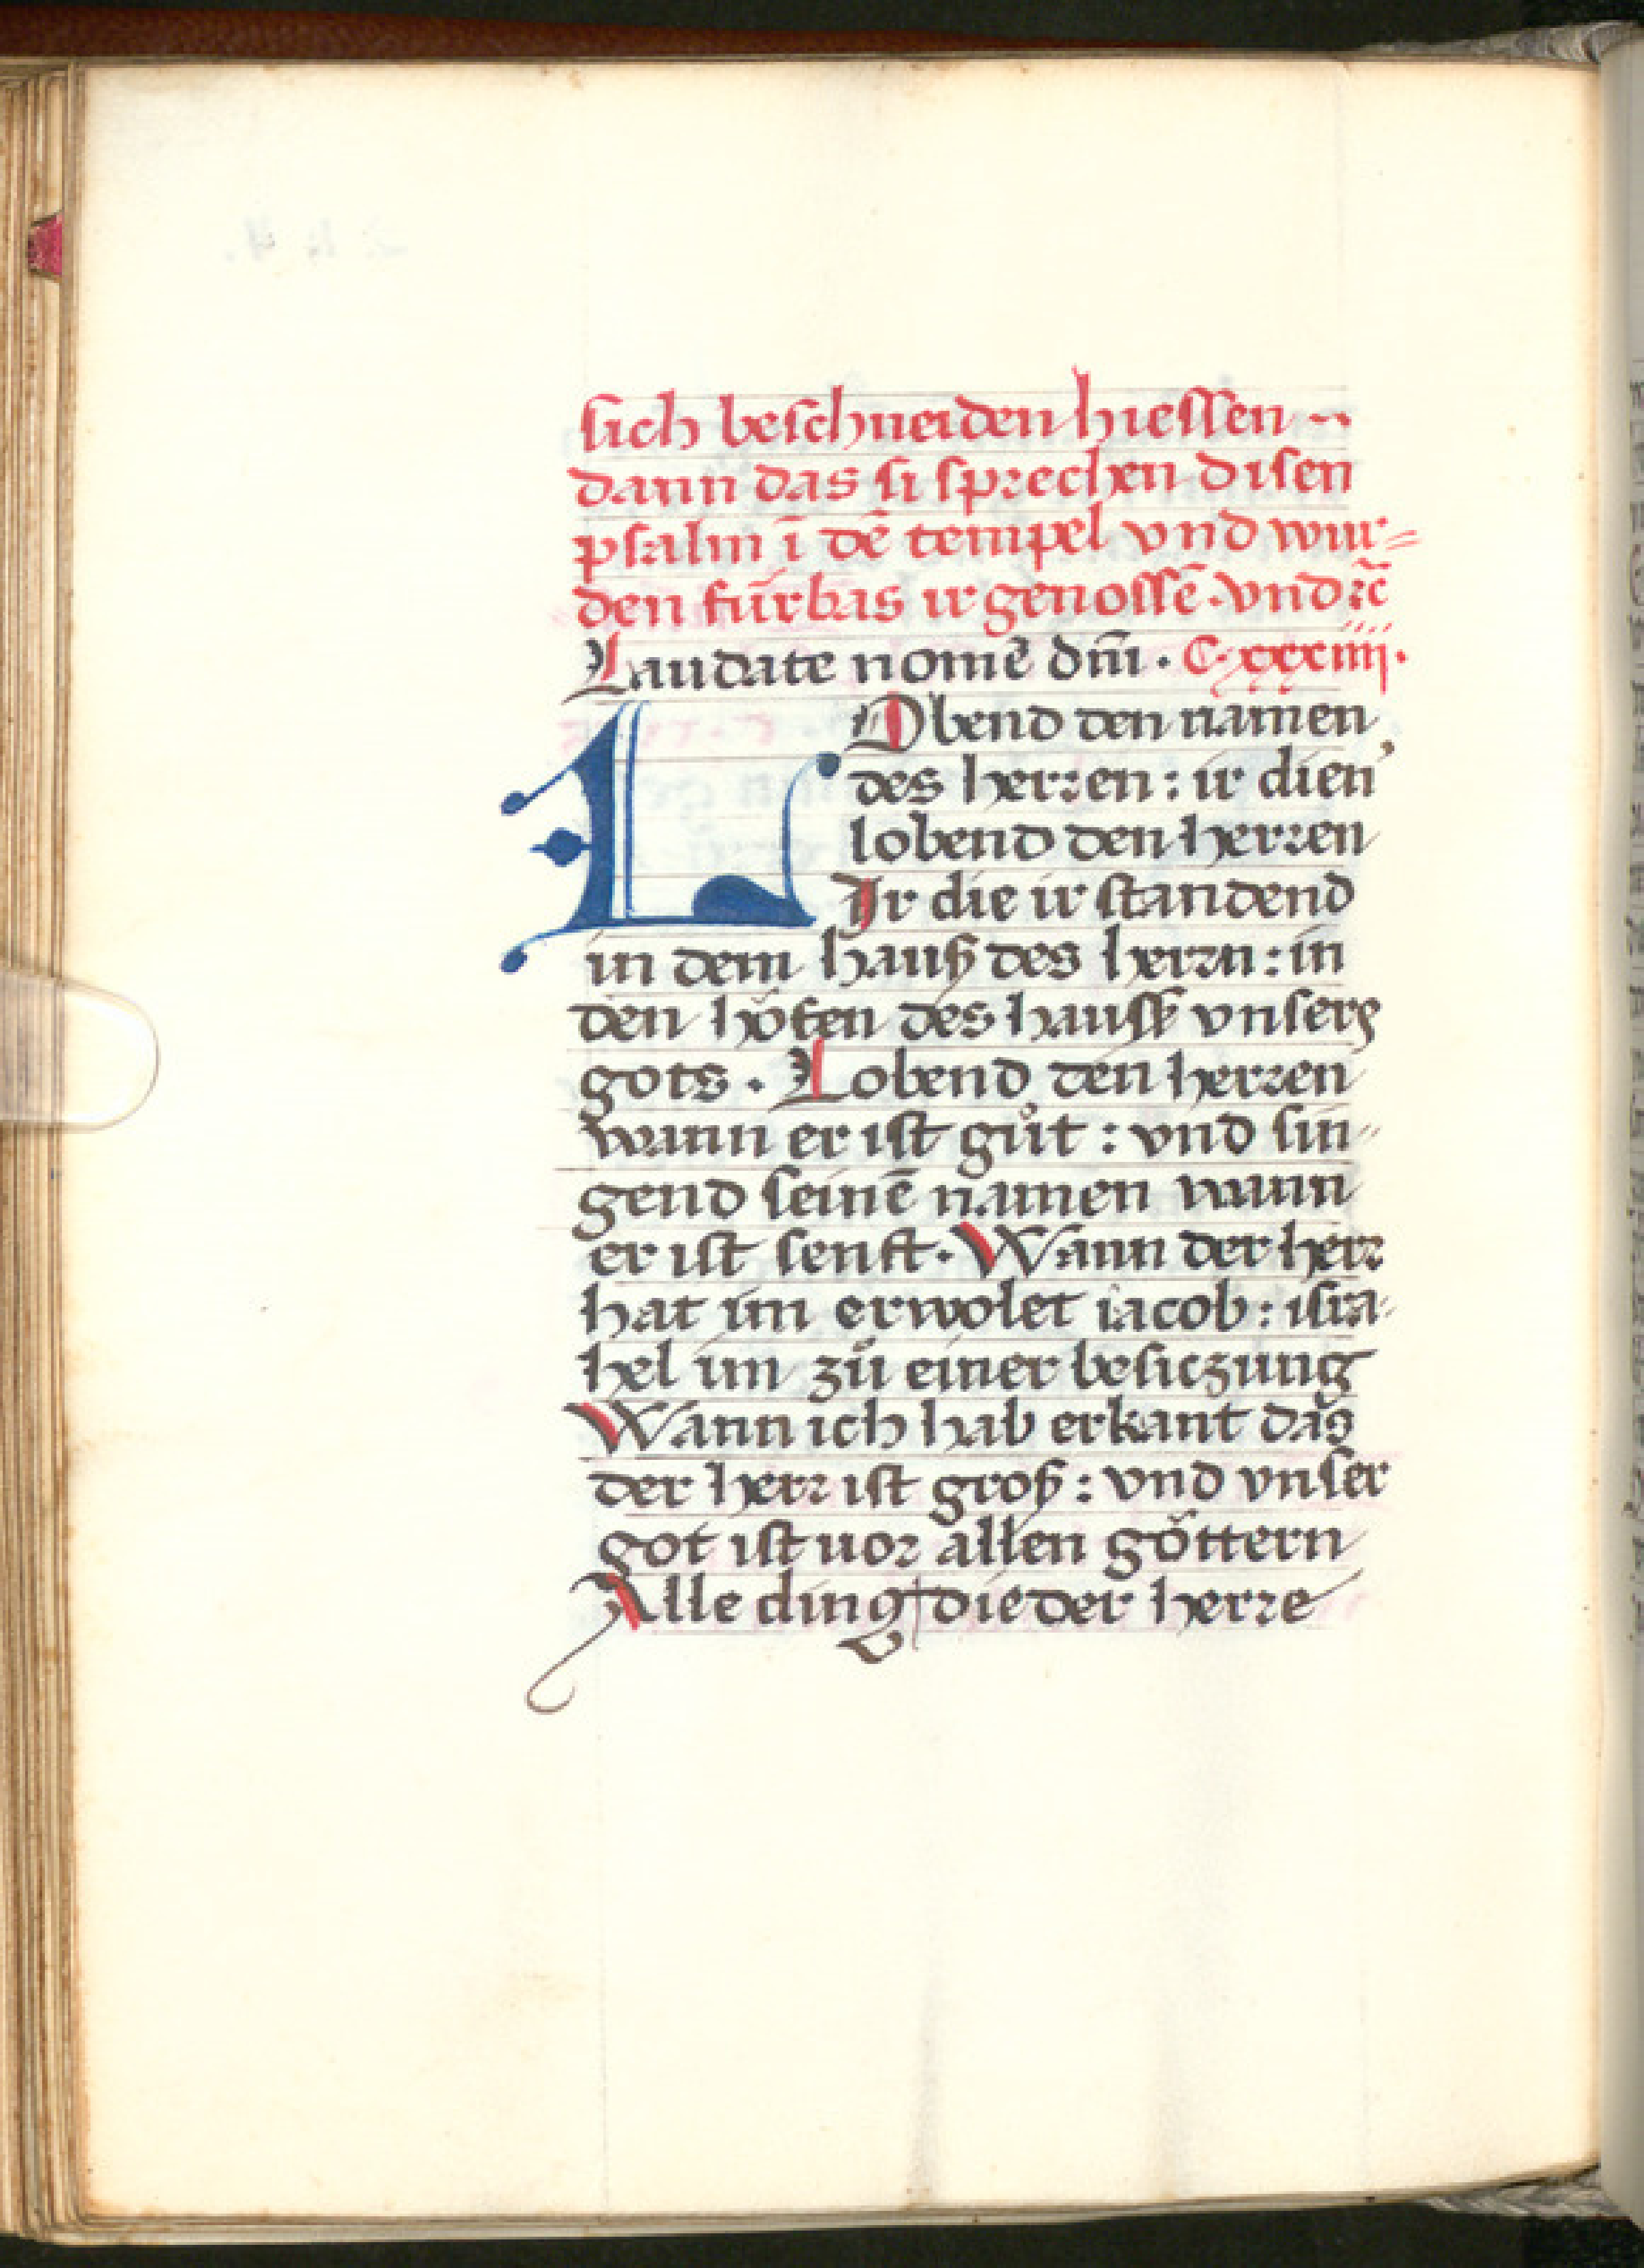 sich beschneiden hiessen
dann das si sprechen disen
psalm ī dē tempel vnd wur=
den fürbas ir genossē. vnd ꝛc̄
Laudate nomē dm̄. C.xxxiiij.
LObend den namen
des herren: ir dien’
lobend den herren
Ir die ir standend
in dem hauß des herrn: in
den höfen des hauss vnsers
gots. Lobend den herren
wann er ist gůt: vnd sin=
gend seinē namen wann
er ist senft. Wann der herr
hat im erwolet iacob: isra-
hel im zů einer besiczung
Wann ich hab erkant das
der herr ist groß: vnd vnser
got ist uor allen göttern
Alle ding die der herre